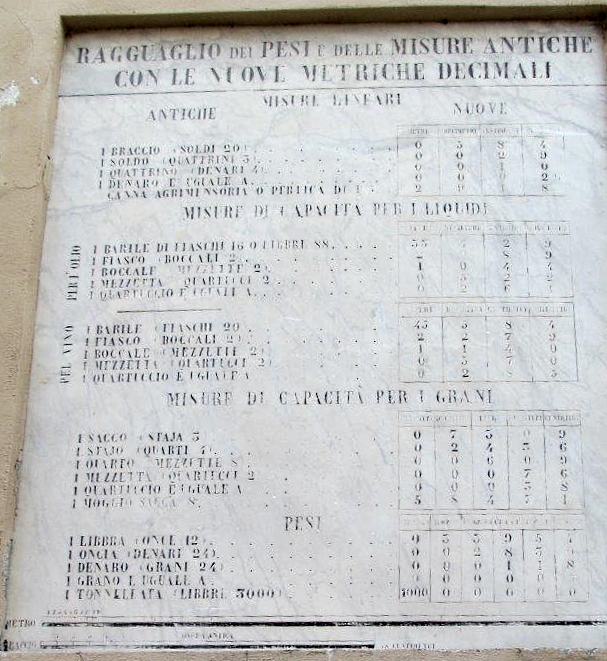 RAGGUAGLIO DEI PESI E DELLE MISURE ANTICHE
CON LE NUOVE METRICHE DECIMALI
MISURE LINEARI
ANTICHE NUOVE
1 BRACCIO (SOLDI 20) 0 5 8 4
1 SOLDO (QUATTRINI 3) 0 0 2 9
1 QUATTRINO (DENARI 4) 0 0 1 0
1 DENARO È UGUALE A 0 0 0 2
CANNA AGRIMENSORIA O PERTICA DI 2 9 1 8
MISURE DI CAPACITÀ PER I LIQUIDI
PER L'OLIO
1 BARILE DI FIASCHI 16 O LIBBRE 88 33 4 2 9
1 FIASCO (BOCCALI 2) 8 9
1 BOCCALE (MEZZETTE 2) 1 0 4 4
1 MEZZETTA (QUARTUCCI 2) 0 5 2
1 QUARTUCCIO È UGUALE A 0 2 6
PEL VINO
1 BARILE (FIASCHI 20) 45 5 8 4
1 FIASCO (BOCCALI 2) 2 2 7 9
1 BOCCALE (MEZZETTE 2) 1 1 4 0
1 MEZZETTA (QUARTUCCI 2) 0 5 7 0
1 QUARTUCCIO È UGUALE A 0 2 8 5
MISURE DI CAPACITÀ PER I GRANI
1 SACCO (STAJA 3) 0 7 3 0 9
1 STAJO (QUARTI 4) 0 2 4 3 6
1 QUARTO (MEZZETTE 8) 0 0 6 0 9
1 MEZZETTA (QUARTUCCI 2) 0 0 0 7 6
1 QUARTUCCIO È UGUALE A 0 0 0 3 8
1 MOGGIO SACCA 8 5 8 4 7 1
PESI
1 LIBBRA (ONCE 12) 0 3 3 9 5
1 ONCIA (DENARI 24) 0 0 2 8 3
1 DENARO (GRANI 24) 0 0 0 1 1 8
1 GRANO È UGUALE A 0 0 0 0 0
1 TONNELLATA (LIBBRE 3000) 1000 0 0 0 0 0
METRO